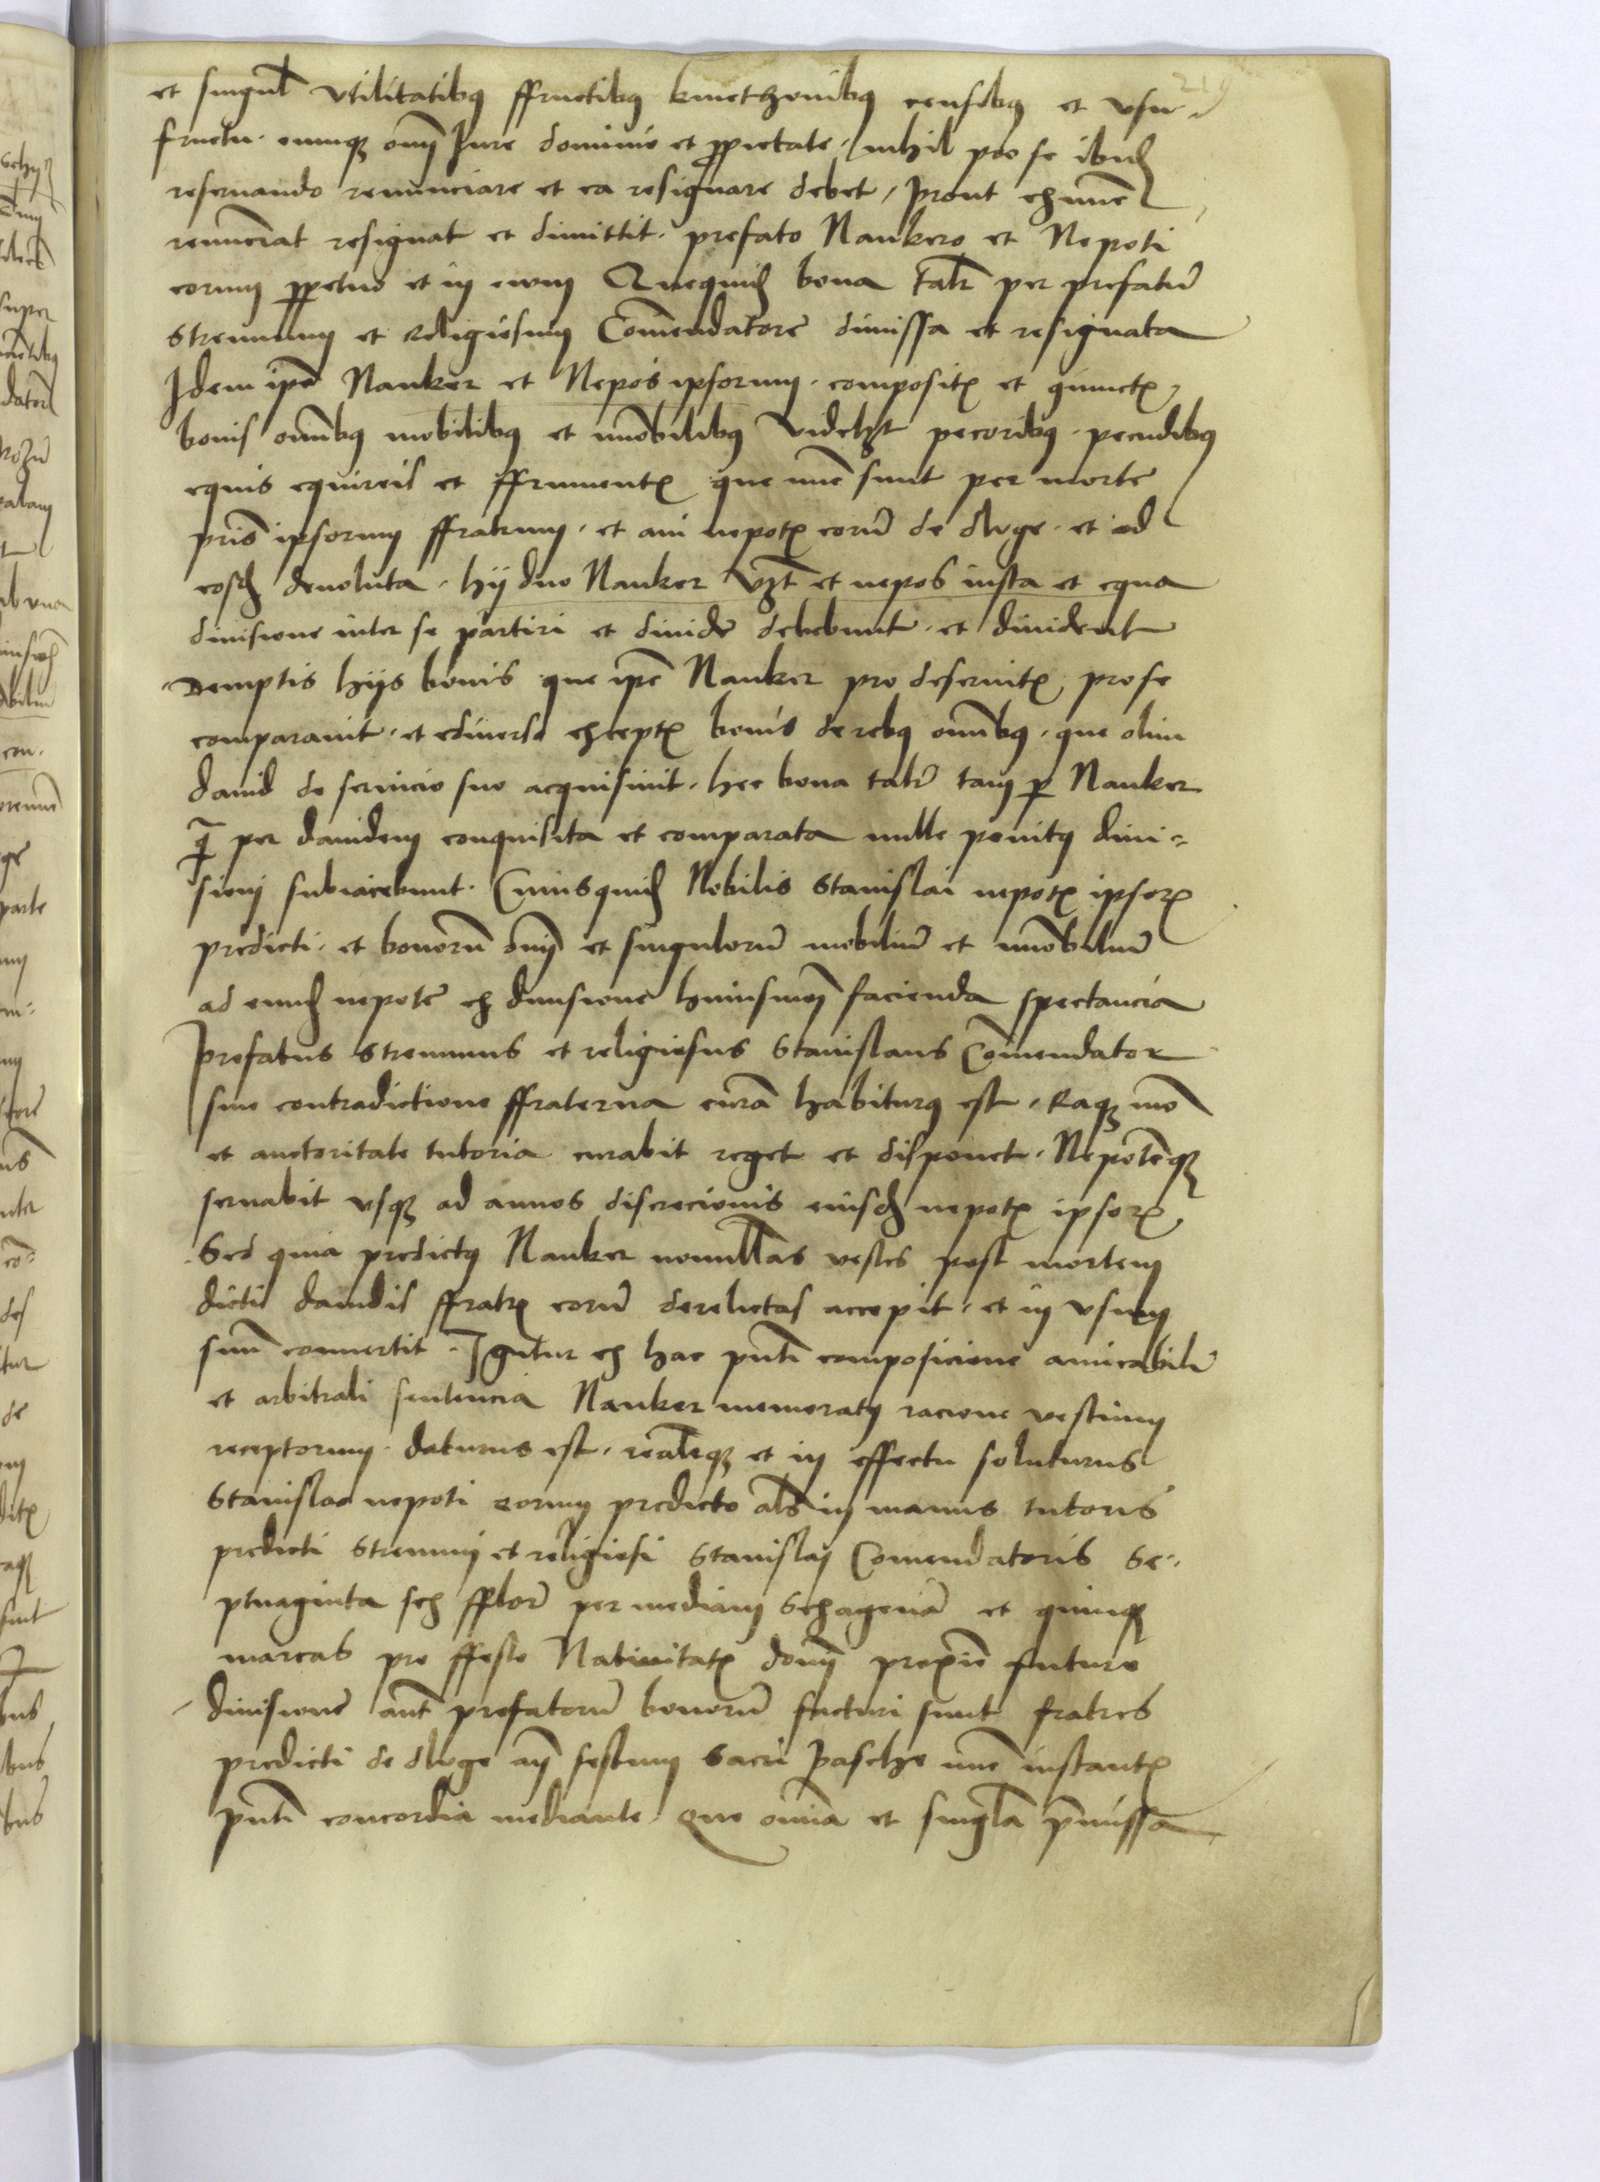 et singul utilitatibq ffructibq kmethonibq censibq et vsu
fructu eumq omi Jure dominio et pprietate nihil pro se ibid
reservando renunciare et ea resignare debet prout ex nunc
renunciat resignat et dimittit prefato Nankero et Nepoti
eorum ppetuo et in evum Quequid bona talr per prefatu
strenuum et religiosum Comendatore dimissa et resignata
Idem ipe Nanker et Nepos ipsorum
bonis omibq mobilibq et imobilibq videlzt pecoribq pecudibq
equis et ffrument que nunc sunt per morte
pris ipsorum ffratrum et avi nepot eoru de dluge et ad
eosd devoluta hij duo Nanker vzt et nepos iusta et equa
divisione inter se partiri et divider debebunt et divident
Demptis hijs bonis que ipe Nanker pro deservit pro se
comparavit et ediverso except bonis de rebq omibq que olim
david de servicio suo acquisivit hec bona talr tam p Nanker
q per davidem conquisita et comparata nulle penitq divi
sioni subiacebunt Cuiusquid Nobilis Stanislai nepot ipsor
predicti et bonoru omi et singuloru mobiliu et imobiliu
ad eund nepote ex divisione huiusmoi facienda spectancia
prefatus strenuus et religiosus Stanislaus Comendator
sine contradictione ffraterna cura habiturq est Eaq mo
et auctoritate tutoria curabit reget et disponet Nepoteq
servabit usq ad annos discrecionis eiusd nepot ipsor
Sed quia predictq Nanker nonullas vestes post mortem
dicti davidis ffratr eoru derelictas accepit et in vsum
suu convertit Igitur ex hac pnti composicione amicabili
et arbitrali sentencia Nanker memoratq racione vestium
receptorum daturus est realiq et in effectu soluturus
Stanislao nepoti eorum predicto als in manus tutoris
predicti strenuij et religiosi Stanislaj Comendatoris Se
ptuaginta sex fflor per mediam sexagena et quinq
marcas pro ffesto Nativitat domi proxime futuro
divisione aut prefatoru bonoru facturi sunt fratres
predicti de dluge an festum Sacri Pasche nunc instant
pnti concordia mediante Que omia et singla pmissa